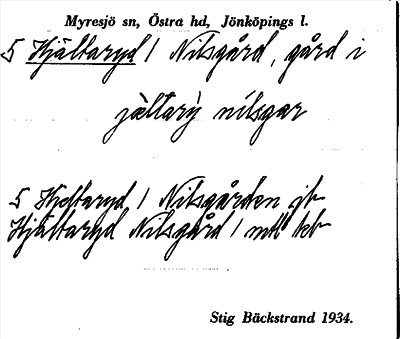 Myresjö sn, Östra hd, Jönköpings l.
S Hjältaryd / Nilsgård, gård i
jæ̀ltarỳ nilsgar
S Hjeltaryd / Nilsgården jb
Hjältaryd Nilsgård / mtl
Stig Bäckstrand 1934.